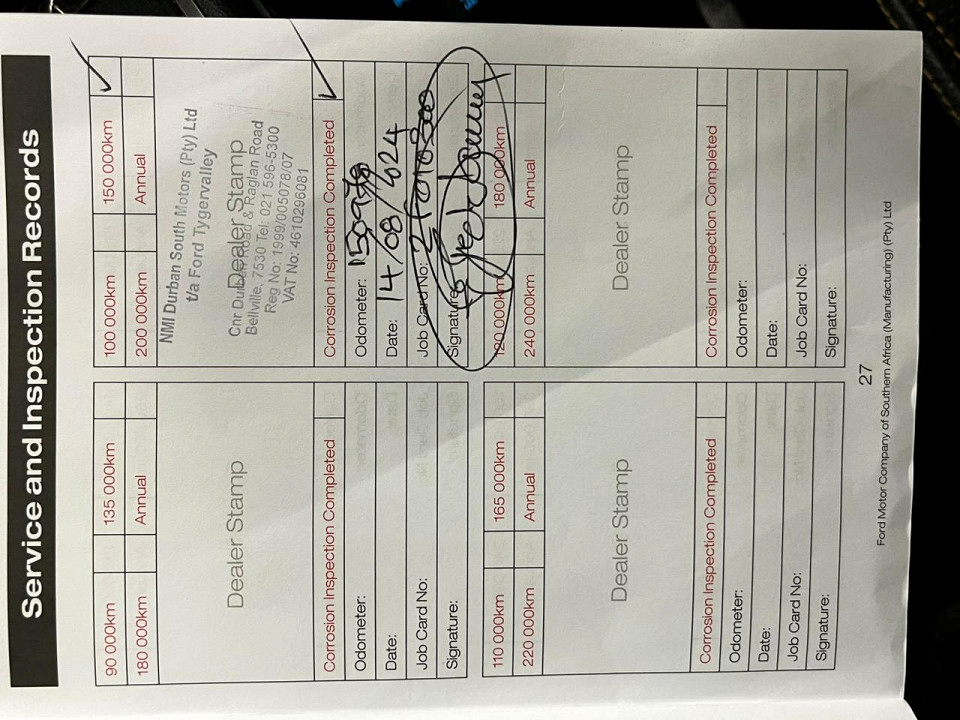 Service and Inspection Records
90 000km 135 000km
180 000km Annual
Dealer Stamp
Corrosion Inspection Completed
Odometer:
Date:
Job Card No:
Signature:
100 000km 150 000km ✓
200 000km Annual
NMI Durban South Motors (Pty) Ltd
t/a Ford Tygervalley
Dealer Stamp
Cnr Durban Road & Raglan Road
Bellville, 7530 Tel: 021 596-5300
Reg No: 1999/005078/07
VAT No: 4610296081
Corrosion Inspection Completed ✓
Odometer:
Date: 14/08/2024
Job Card No:
Signature:
110 000km 165 000km
220 000km Annual
Dealer Stamp
Corrosion Inspection Completed
Odometer:
Date:
Job Card No:
Signature:
120 000km 180 000km
240 000km Annual
Dealer Stamp
Corrosion Inspection Completed
Odometer:
Date:
Job Card No:
Signature:
27
Ford Motor Company of Southern Africa (Manufacturing) (Pty) Ltd